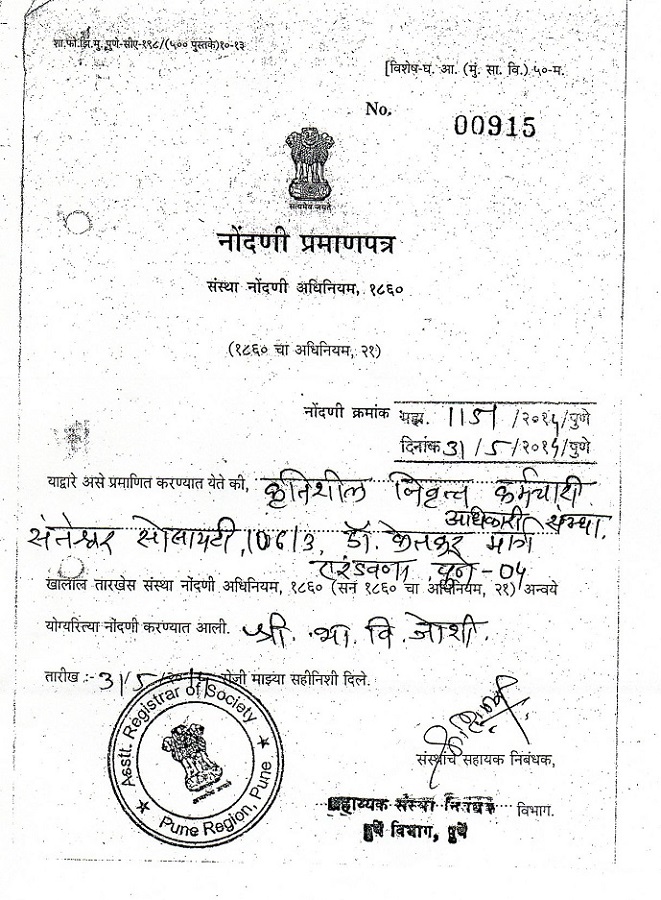 शा.फो.झि.मु. पुणे-सीए-१९८/(५०० पुस्तके)१०-१३
[विशेष-घ. आ. (मुं. सा. वि.) ५०-म.
No. 00915
सत्यमेव जयते
नोंदणी प्रमाणपत्र
संस्था नोंदणी अधिनियम, १८६०
(१८६० चा अधिनियम, २१)
नोंदणी क्रमांक /२०१५/पुणे
दिनांक 31/5/२०१५/पुणे
याद्वारे असे प्रमाणित करण्यात येते की, कृतिशील निवृत्त कर्मचारी
अधिकारी संस्था.
सोसायटी, 106/3, डॉ. केतकर मार्ग
एरंडवणा, पुणे-04
खालील तारखेस संस्था नोंदणी अधिनियम, १८६० (सन १८६० चा अधिनियम, २१) अन्वये
योग्यरित्या नोंदणी करण्यात आली. श्री. भा. वि. जोशी.
तारीख :- 31/5/२०१५ रोजी माझ्या सहीनिशी दिले.
Asstt. Registrar of Society
Pune Region, Pune
संस्थांचे सहायक निबंधक,
सहाय्यक संस्था निबंधक विभाग.
पुणे विभाग, पुणे